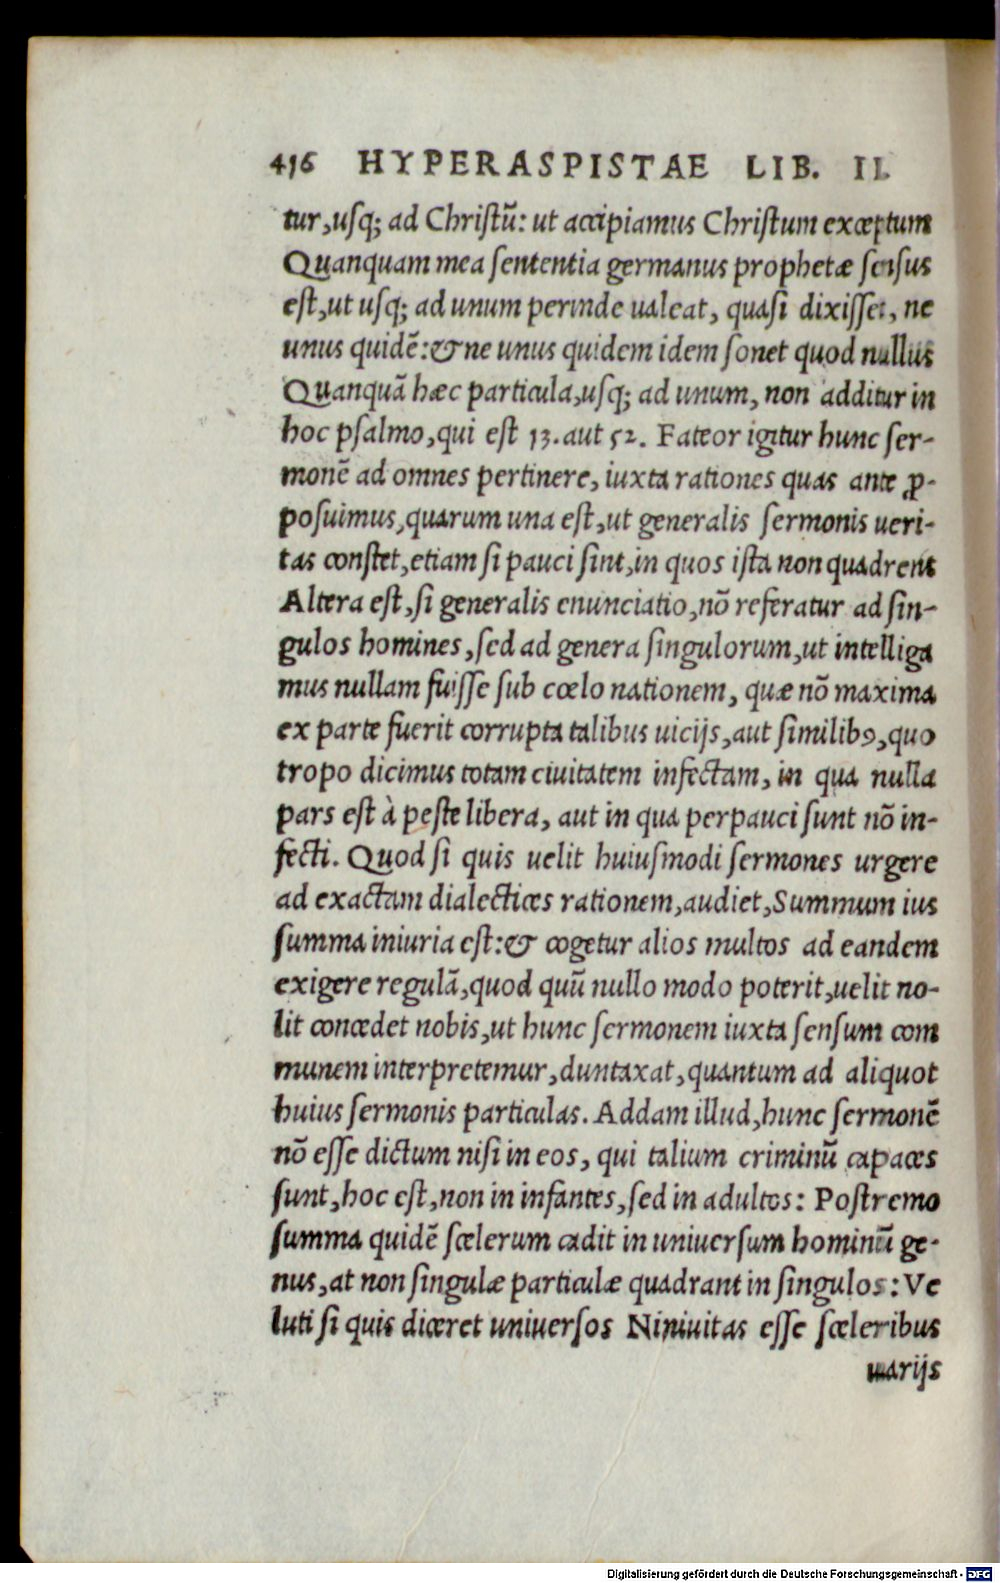 416 HYPERASPISTAE LIB. II.
tur,usq; ad Christũ: ut accipiamus Christum exceptum
Quanquam mea sententia germanus prophetæ sensus
est,ut usq; ad unum perinde ualeat, quasi dixisset, ne
unus quidẽ:& ne unus quidem idem sonet quod nullus
Quanquã hæc particula,usq; ad unum, non additur in
hoc psalmo,qui est 13. aut 52. Fateor igitur hunc ser-
monẽ ad omnes pertinere, iuxta rationes quas ante ꝓ-
posuimus,quarum una est,ut generalis sermonis ueri-
tas constet,etiam si pauci sint,in quos ista non quadrent
Altera est,si generalis enunciatio,nõ referatur ad sin-
gulos homines,sed ad genera singulorum,ut intelliga
mus nullam fuisse sub cœlo nationem, quæ nõ maxima
ex parte fuerit corrupta talibus uicijs,aut similibꝰ,quo
tropo dicimus totam ciuitatem infectam, in qua nulla
pars est à peste libera, aut in qua perpauci sunt nõ in-
fecti. Quod si quis uelit huiusmodi sermones urgere
ad exactam dialectices rationem,audiet,Summum ius
summa iniuria est:& cogetur alios multos ad eandem
exigere regulã,quod quũ nullo modo poterit,uelit no-
lit concedet nobis,ut hunc sermonem iuxta sensum com
munem interpretemur,duntaxat,quantum ad aliquot
huius sermonis particulas. Addam illud,hunc sermonẽ
nõ esse dictum nisi in eos, qui talium criminũ capaces
sunt,hoc est,non in infantes,sed in adultos: Postremo
summa quidẽ scelerum cadit in uniuersum hominũ ge-
nus,at non singulæ particulæ quadrant in singulos: Ve
luti si quis diceret uniuersos Niniuitas esse sceleribus
uarijs
Digitalisierung gefördert durch die Deutsche Forschungsgemeinschaft - DFG